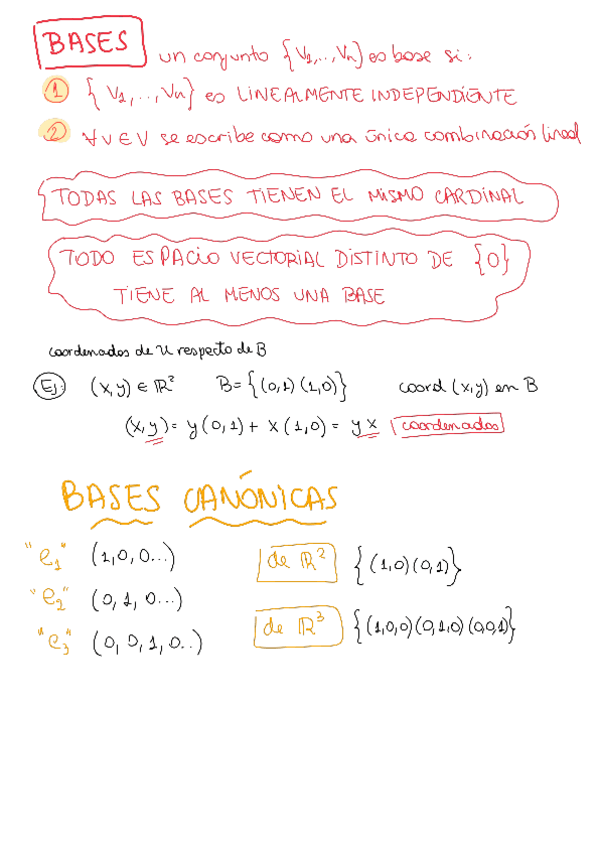 BASES un conjunto {V₁,..,Vₙ} es base si:
① { V₁, ..., Vₙ} es LINEALMENTE INDEPENDIENTE
② ∀ v ∈ V se escribe como una única combinación lineal
TODAS LAS BASES TIENEN EL MISMO CARDINAL
TODO ESPACIO VECTORIAL DISTINTO DE {0}
TIENE AL MENOS UNA BASE
coordenadas de u respecto de B
Ej: (x,y) ∈ ℝ² B={(0,1)(1,0)} coord (x,y) en B
(x,y)= y(0,1)+ x(1,0) = y x coordenadas
BASES CANÓNICAS
"e₁" (1,0,0...) de ℝ² {(1,0)(0,1)}
"e₂" (0,1,0...)
"e₃" (0,0,1,0..) de ℝ³ {(1,0,0)(0,1,0)(0,0,1)}